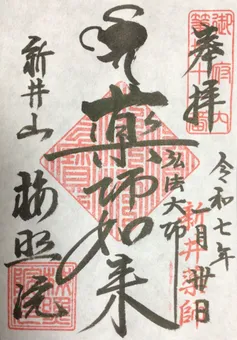 奉拝
令和七年 月卅日
新井薬師
弘法大師
薬師如来
新井山
梅照院